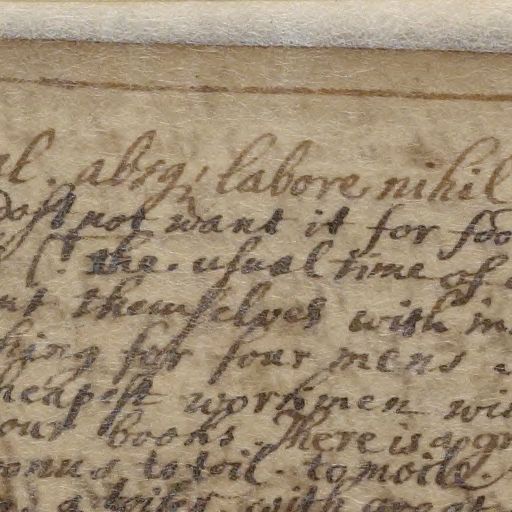 al. absq; labore nihil
dost not want it for foo
the. usual time of
ut themselves with
hing for four mens
heapest workmen wi
our books. There is a gr
onus to toil. to moile.
with great